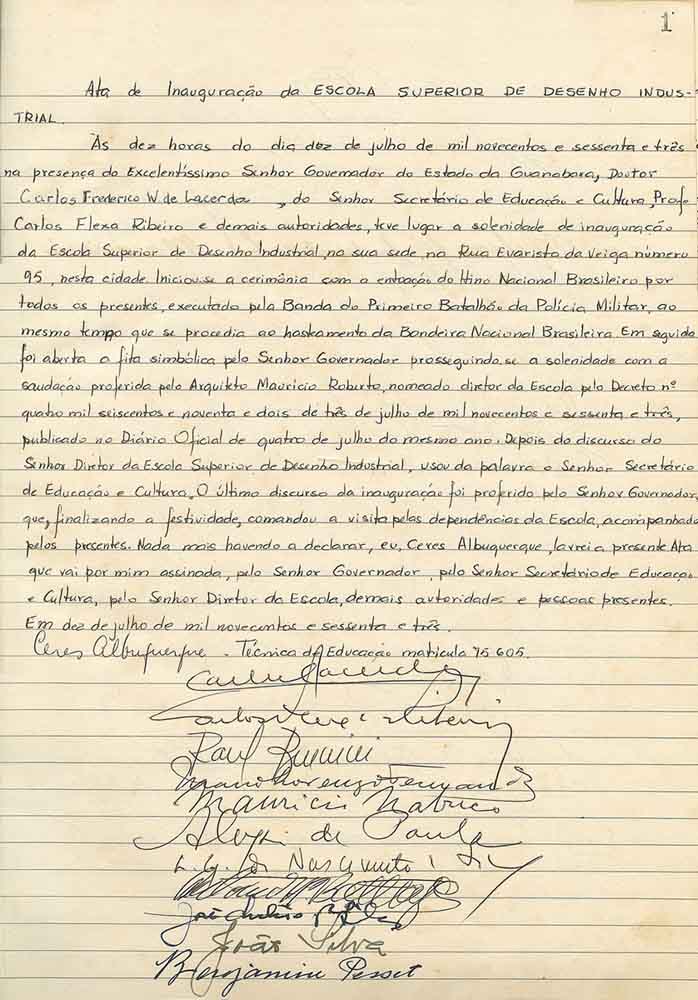 1
Ata de Inauguração da ESCOLA SUPERIOR DE DESENHO INDUS-
TRIAL.
Às dez horas do dia dez de julho de mil novecentos e sessenta e três
na presença do Excelentíssimo Senhor Governador do Estado da Guanabara, Doutor
Carlos Frederico W. de Lacerda, do Senhor Secretário de Educação e Cultura, Profe
Carlos Flexa Ribeiro e demais autoridades, teve lugar a solenidade de inauguração
da Escola Superior de Desenho Industrial, na sua sede, na Rua Evaristo da Veiga número
95, nesta cidade. Iniciou-se a cerimônia com a entoação do Hino Nacional Brasileiro por
todos os presentes, executado pela Banda do Primeiro Batalhão da Polícia Militar, ao
mesmo tempo que se procedia ao hasteamento da Bandeira Nacional Brasileira. Em seguida
foi aberta a fita simbólica pelo Senhor Governador prosseguindo-se a solenidade com a
saudação proferida pelo Arquiteto Mauricio Roberto, nomeado diretor da Escola pelo Decreto nº
quatro mil seiscentos e noventa e dois de três de julho de mil novecentos e sessenta e três,
publicado no Diário Oficial de quatro de julho do mesmo ano. Depois do discurso do
Senhor Diretor da Escola Superior de Desenho Industrial, usou da palavra o Senhor Secretário
de Educação e Cultura. O último discurso da inauguração foi proferido pelo Senhor Governador,
que, finalizando a festividade, comandou a visita pelas dependências da Escola, acompanhado
pelos presentes. Nada mais havendo a declarar, eu, Ceres Albuquerque, lavrei a presente Ata
que vai por mim assinada, pelo Senhor Governador, pelo Senhor Secretário de Educação
e Cultura, pelo Senhor Diretor da Escola, demais autoridades e pessoas presentes.
Em dez de julho de mil novecentos e sessenta e três.
Ceres Albuquerque - Técnica de Educação matricula 75605.
Raul
Mauricio Nabuco
Aloysio de Paula
L. G. do Nascimento e Silva
João
João Silva
Benjamim